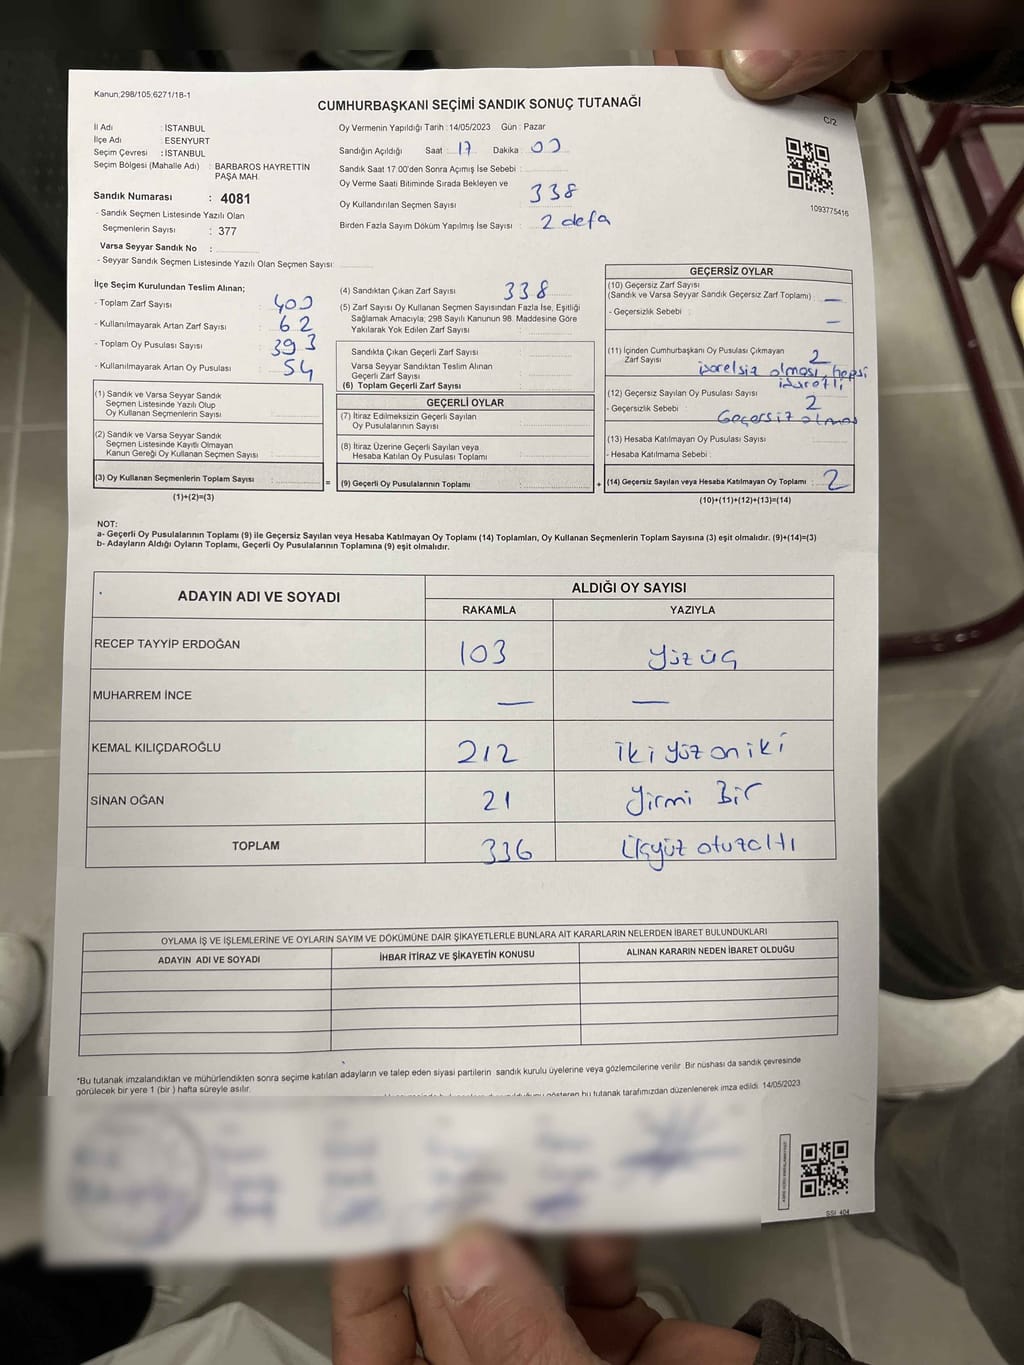 Kanun;298/105;6271/18-1
CUMHURBAŞKANI SEÇİMİ SANDIK SONUÇ TUTANAĞI
C/2
İl Adı : İSTANBUL
İlçe Adı : ESENYURT
Seçim Çevresi : İSTANBUL
Seçim Bölgesi (Mahalle Adı) : BARBAROS HAYRETTİN
PAŞA MAH.
Sandık Numarası : 4081
- Sandık Seçmen Listesinde Yazılı Olan
Seçmenlerin Sayısı : 377
Varsa Seyyar Sandık No :
- Seyyar Sandık Seçmen Listesinde Yazılı Olan Seçmen Sayısı:
Oy Vermenin Yapıldığı Tarih : 14/05/2023 Gün : Pazar
Sandığın Açıldığı Saat : 17 Dakika : 00
Sandık Saat 17.00'den Sonra Açımış İse Sebebi :
Oy Verme Saati Bitiminde Sırada Bekleyen ve
Oy Kullandırılan Seçmen Sayısı : 338
Birden Fazla Sayım Döküm Yapılmış İse Sayısı : 2 defa
1093775416
İlçe Seçim Kurulundan Teslim Alınan;
- Toplam Zarf Sayısı : 400
- Kullanılmayarak Artan Zarf Sayısı : 62
- Toplam Oy Pusulası Sayısı : 393
- Kullanılmayarak Artan Oy Pusulası : 54
(1) Sandık ve Varsa Seyyar Sandık
Seçmen Listesinde Yazılı Olup
Oy Kullanan Seçmenlerin Sayısı :
(2) Sandık ve Varsa Seyyar Sandık
Seçmen Listesinde Kayıtlı Olmayan
Kanun Gereği Oy Kullanan Seçmen Sayısı :
(3) Oy Kullanan Seçmenlerin Toplam Sayısı :
(1)+(2)=(3)
(4) Sandıktan Çıkan Zarf Sayısı : 338
(5) Zarf Sayısı Oy Kullanan Seçmen Sayısından Fazla İse, Eşitliği
Sağlamak Amacıyla; 298 Sayılı Kanunun 98. Maddesine Göre
Yakılarak Yok Edilen Zarf Sayısı :
Sandıkta Çıkan Geçerli Zarf Sayısı :
Varsa Seyyar Sandıktan Teslim Alınan
Geçerli Zarf Sayısı :
(6) Toplam Geçerli Zarf Sayısı :
GEÇERLİ OYLAR
(7) İtiraz Edilmeksizin Geçerli Sayılan
Oy Pusulalarının Sayısı :
(8) İtiraz Üzerine Geçerli Sayılan veya
Hesaba Katılan Oy Pusulası Toplamı :
= (9) Geçerli Oy Pusulalarının Toplamı : +
GEÇERSİZ OYLAR
(10) Geçersiz Zarf Sayısı
(Sandık ve Varsa Seyyar Sandık Geçersiz Zarf Toplamı) : —
- Geçersizlik Sebebi : —
(11) İçinden Cumhurbaşkanı Oy Pusulası Çıkmayan
Zarf Sayısı : 2
olması, hepsi
(12) Geçersiz Sayılan Oy Pusulası Sayısı : 2
- Geçersizlik Sebebi : Geçersiz olması
(13) Hesaba Katılmayan Oy Pusulası Sayısı :
- Hesaba Katılmama Sebebi :
(14) Geçersiz Sayılan veya Hesaba Katılmayan Oy Toplamı : 2
(10)+(11)+(12)+(13)=(14)
NOT:
a- Geçerli Oy Pusulalarının Toplamı (9) ile Geçersiz Sayılan veya Hesaba Katılmayan Oy Toplamı (14) Toplamları, Oy Kullanan Seçmenlerin Toplam Sayısına (3) eşit olmalıdır. (9)+(14)=(3)
b- Adayların Aldığı Oyların Toplamı, Geçerli Oy Pusulalarının Toplamına (9) eşit olmalıdır.
ADAYIN ADI VE SOYADI
ALDIĞI OY SAYISI
RAKAMLA YAZIYLA
RECEP TAYYİP ERDOĞAN 103 Yüz üç
MUHARREM İNCE — —
KEMAL KILIÇDAROĞLU 212 iki yüz on iki
SİNAN OĞAN 21 Yirmi Bir
TOPLAM 336 Üçyüz otuzaltı
OYLAMA İŞ VE İŞLEMLERİNE VE OYLARIN SAYIM VE DÖKÜMÜNE DAİR ŞİKAYETLERLE BUNLARA AİT KARARLARIN NELERDEN İBARET BULUNDUKLARI
ADAYIN ADI VE SOYADI İHBAR İTİRAZ VE ŞİKAYETİN KONUSU ALINAN KARARIN NEDEN İBARET OLDUĞU
*Bu tutanak imzalandıktan ve mühürlendikten sonra seçime katılan adayların ve talep eden siyasi partilerin sandık kurulu üyelerine veya gözlemcilerine verilir. Bir nüshası da sandık çevresinde
görülecek bir yere 1 (bir ) hafta süreyle asılır.
gösteren bu tutanak tarafımızdan düzenlenerek imza edildi. 14/05/2023
SSI 404